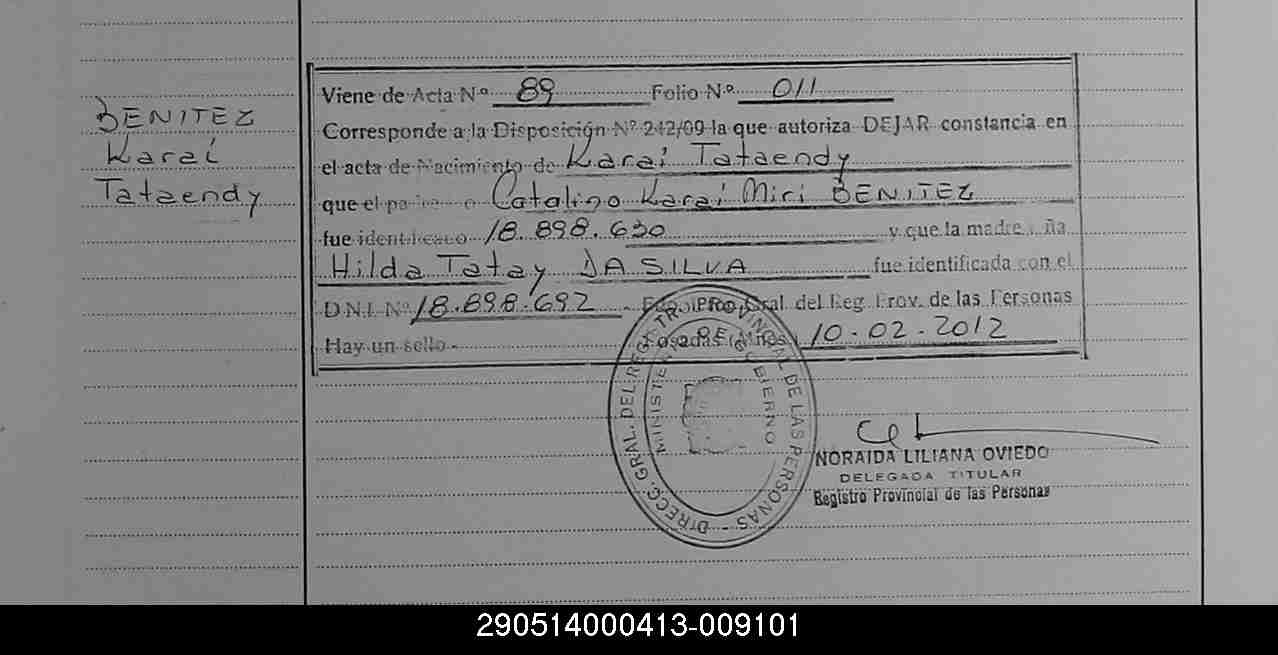 BENITEZ
Karaí
Tataendy
Viene de Acta Nº 89 Folio Nº 011
Corresponde a la Disposición Nº 242/09 la que autoriza DEJAR constancia en
el acta de Nacimiento de Karaí Tataendy
que el padre Catalino Karaí Miri BENITEZ
fue identificado 18.898.630 y que la madre
Hilda Tatay DA SILVA fue identificada con el
D.N.I. Nº 18.898.692 Gral. del Reg. Prov. de las Personas
Hay un sello.- Posadas (Mnes) 10-02-2012
DIRECC. GRAL. DEL REGISTRO PROVINCIAL DE LAS PERSONAS -
MINISTERIO DE GOBIERNO
NORAIDA LILIANA OVIEDO
DELEGADA TITULAR
Registro Provincial de las Personas
290514000413-009101